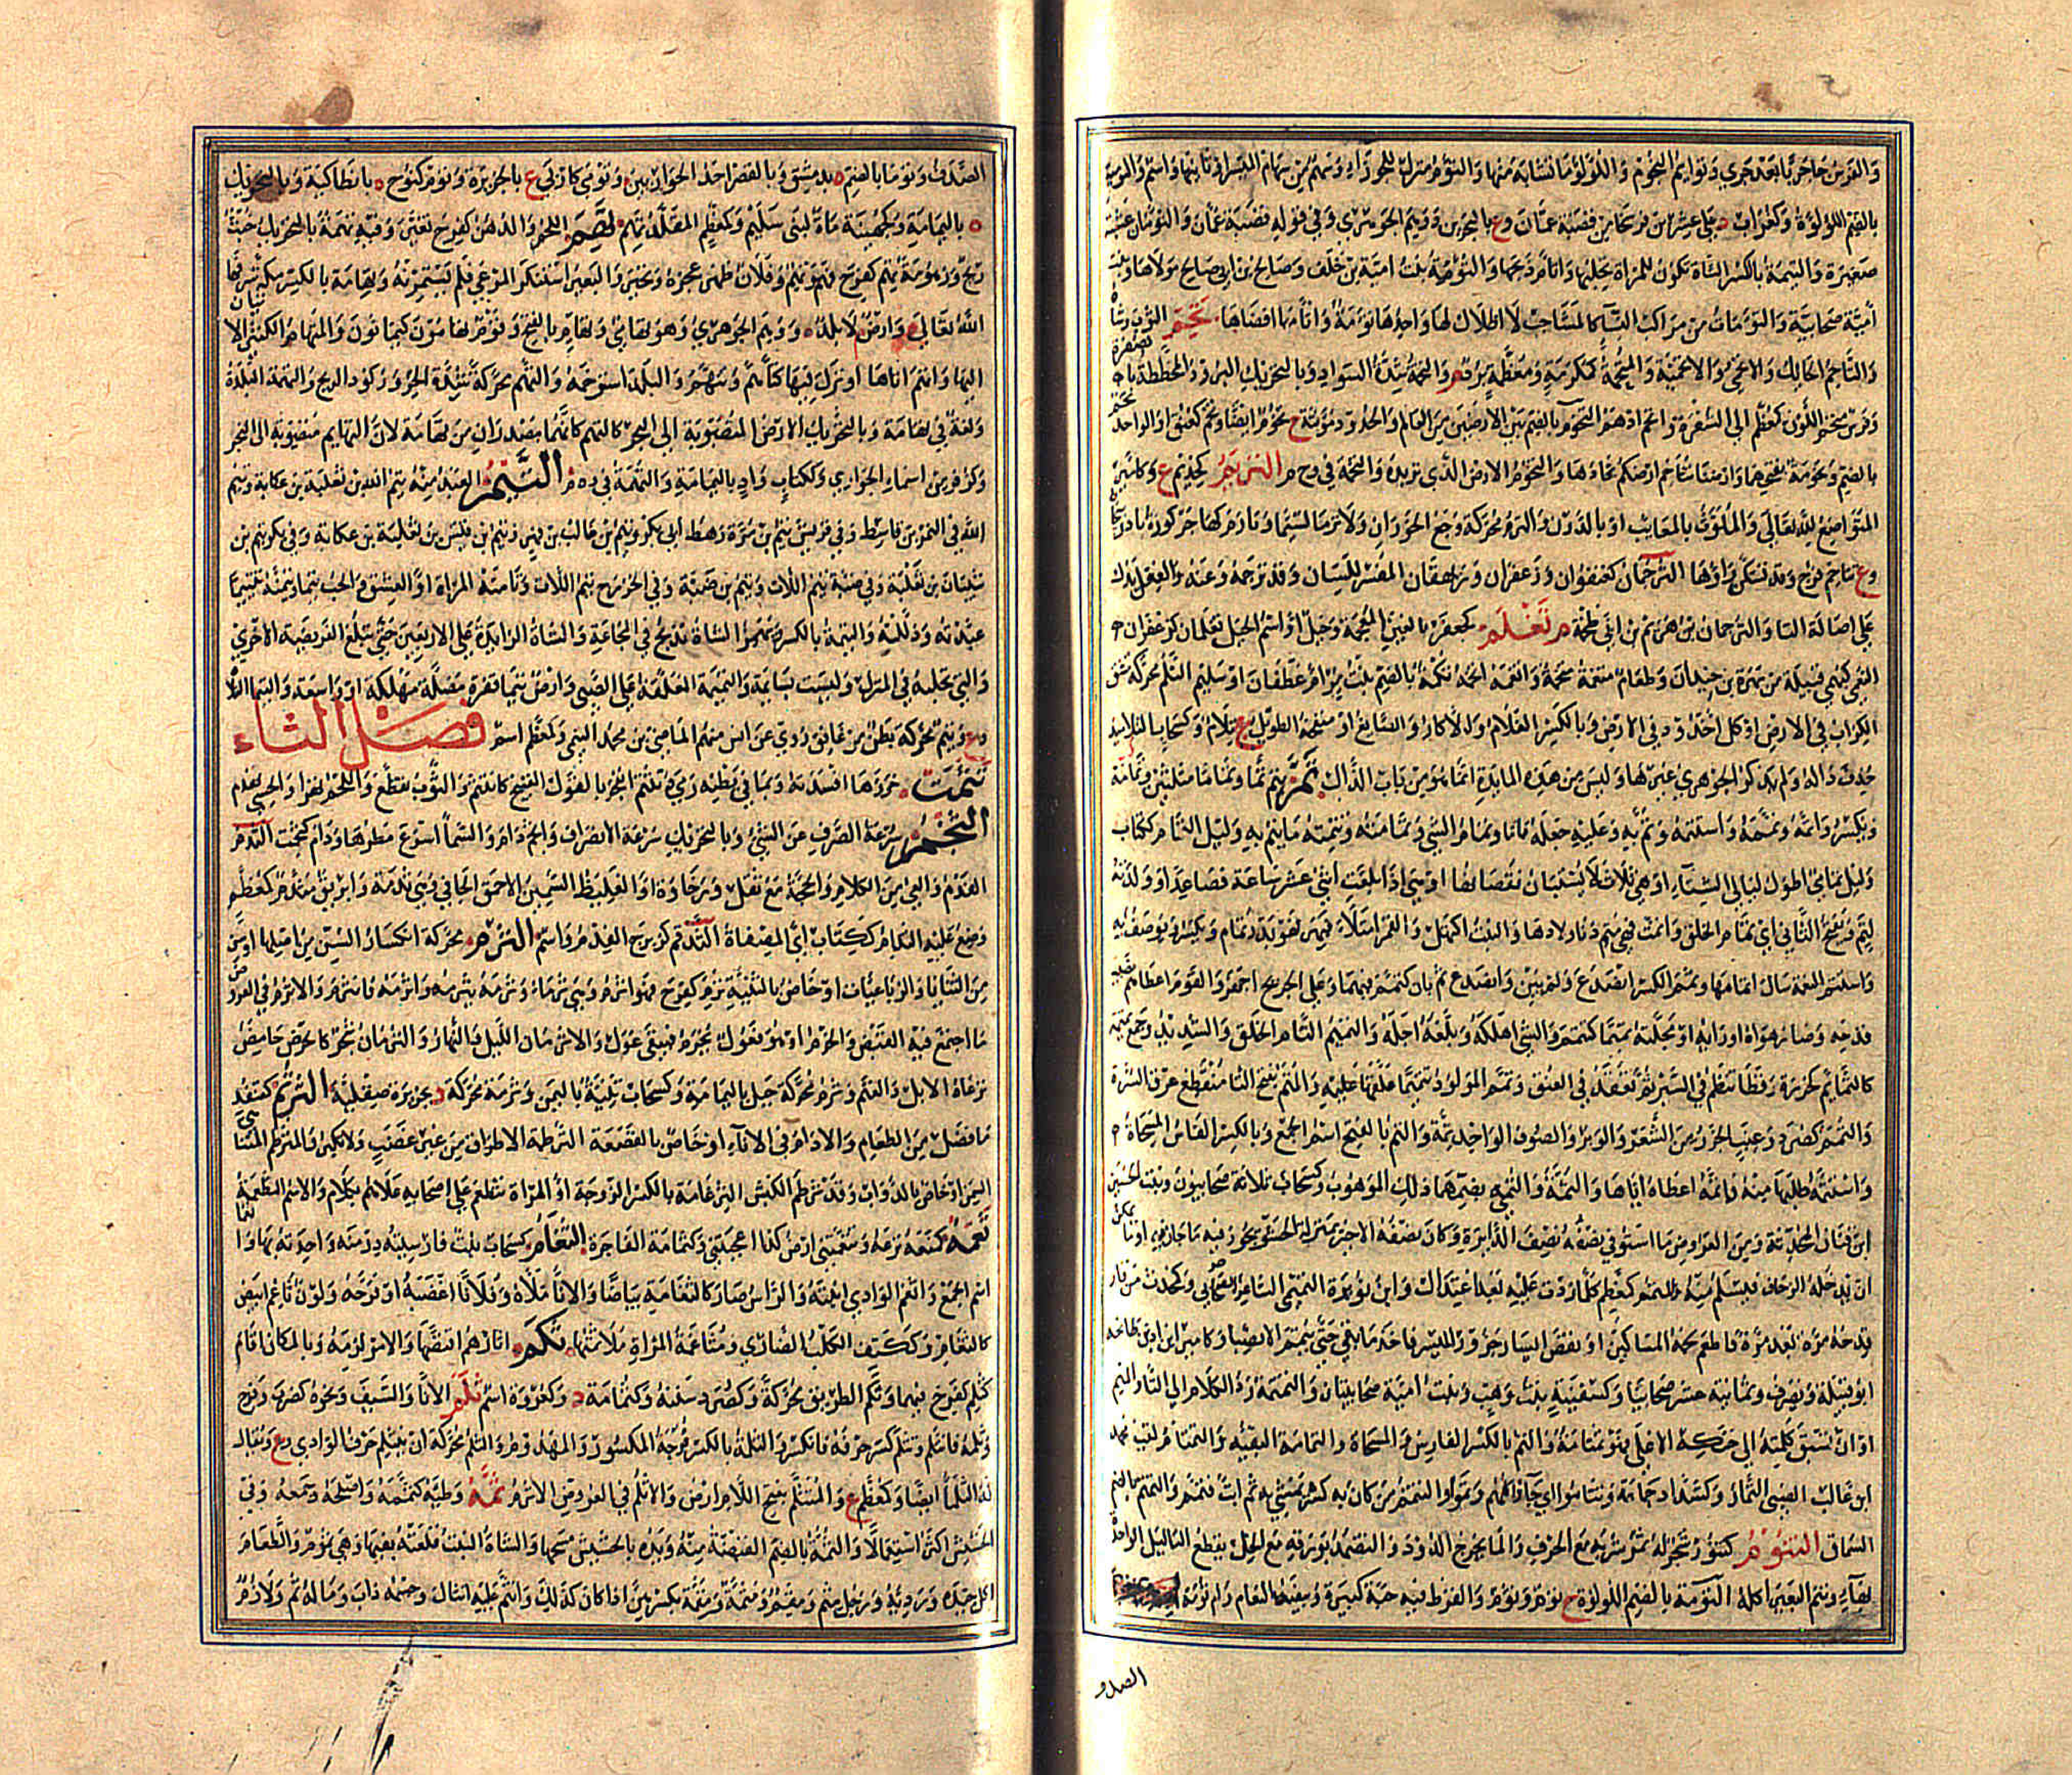 والفرس جاء جريا بعد جري وتوائم النجوم واللؤلؤ ما تشابه منها والتوأم منزل للجوزاء وسهم من سهام الميسر او ثانيها واسم والتؤمية
بالضم اللؤلؤة وكغراب د على عشرين فرسخا من قصبة عمان وع بالبحرين ووهم الجوهري في قوله قصبة عمان والتوئمان عشبة
صغيرة والتئمة بالكسر الشاة تكون للمراة تحلبها واتأم ذبحها والتوأمة بنت امية بن خلف وصالح بن ابي صالح مولاها وبنت
أمية صحابية والتوأمات من مراكب النساء كالمشاجب لا اظلال لها واحدها توأمة واتأمها افضاها تحم الثوب وشاه
والتاحم الحائك والاتحمي والاتحمية والمتحمة كمكرمة ومعظمة برد م والتحمة شدة السواد وبالتحريك البرود المخططة بالصفرة
وفرس متحم اللون كمعظم الى الشقرة واتحم ادهم التخوم بالضم الفصل بين الارضين من المعالم والحدود مؤنثة ج تخوم ايضا وتخم كعنق او الواحد
بالضم وتخومة بفتحهما وارضنا تتاخم ارضكم تحادها والتخوم الارض الذي تريده والتخمة في وخ م التريم كحذيم ع وكامير
المتواضع لله تعالى والملوث بالمعايب او بالدرن والترم محركة وجع الخوران ولا ترما لاسيما وتارم كهاجر كورة باذربيجان
وع تتاخم مرج وقد تسكن راؤها الترجمان كعنفوان وزعفران وزيهقان المفسر للسان وقد ترجمه وعنه والفعل يدل
على اصالة التا والترجمان بن هريم بن ابي طخمة م تغلم كجعفر بالغين المعجمة وجبل او اسم الجبل تغلمان كزعفران
التغمي قبيلة من مهرة بن حيدان وطعام متغمة متخمة واتغمه اتخمه تكمة بالضم بنت مر ام غطفان او سليم التلم محركة مشق
الكراب في الارض او كل اخدود في الارض وبالكسر الغلام والاكار والصايغ او منفخه الطويل ج تلام وكسحاب التلاميذ
حذف ذاله ولم يذكر الجوهري غيرها وليس من هذه المادة انما هو من باب الذال تم يتم تما وتماما مثلثين وتمامة
ويكسر واتمه وتممه واستتمه وتم به وعليه جعله تاما وتمام الشي وتمامته وتتمته ما يتم به وليل التمام ككتاب
وليل تمامي اطول ليالي الشتاء او هي ثلاث لا يستبان نقصانها او هي اذا بلغت اثنتي عشر ساعة فصاعدا وولدته
لتم وتفتح الثاني اي تمام الخلق واتمت فهي متم دنا ولادها والنبت اكتهل والقمر امتلأ فبهر فهو بدر تمام ويكسر ويوصف به
واستتم النعمة سال اتمامها وتمم الكسر انصدع ولم يبن وانصدع ثم بان كتمم فيهما وعلى الجريح اجهز والقوم اعطاهم نصيب
قدحه وصار هواه اورايه او محلته تميميا كتتمم والشي اهلكه وبلغه اجله والتميم التام الخلق والشديد وجمع تميمة
كالتمائم لخرزة رقطا تنظم في السير ثم تعقد في العنق وتمم المولود تتميما علقها عليه والمتم بفتح التا منقطع عرق السرة
والتمم كصرد وعنب الجزر من الشعر والوبر والصوف الواحدة تمة والتم بالفتح اسم الجمع وبالكسر الفاس والمسحاة
واستتمه طلبها منه فاتمه اعطاه اياها والتمة والتمى بضمهما ذلك الموهوب وكسحاب ثلاثة صحابيون وبنت الحسين
ابن قنان المحدثة ومن العروض ما استوفي نصفه نصف الدايرة وكان نصفه الاخير بمنزلة الحشو يجوز فيه ما جاز فيه او ما يمكن
ان يدخله الزحاف فيسلم منه والمتمم كمعظم كل ما زدت عليه بعد اعتدال وابن نويرة التميمي الشاعر الصحابي وكمحدث من فاز
قدحه مرة بعد مرة فاطعم لحمه المساكين او نقص ايسار جزور الميسر فاخذ ما بقي حتى يتمم الانصبا وكامير ابن اد بن طابخة
ابو قبيلة ويصرف وثمانية عشر صحابيا وكسفينة بنت وهب وبنت امية صحابيتان والتمتمة رد الكلام الى التاء والميم
او ان تسبق كلمته الى حنكه الاعلى فهو تمتام وهي تمتامة والتم بالكسر الفاس والمسحاة والتمامة البقية والتمتام لقب محمد
ابن غالب الضبي التمار وكشداد جماعة وتتاموا اي جاؤا كلهم وتموا والتمم من كان به كسر يمشي به ثم ابت فتتمم والتمتم بالضم
السماق التنوم كتنور شجر له ثمر شربه مع الحرف والماء يخرج الدود والتضمد بورقه مع الخل يقطع الثاليل الواحدة
بهاء وتنم البعير اكله التومة بالضم اللؤلؤة ج توم وتوم والقرط فيه حبة كبيرة وبيضة النعام وام تومة
الصدف
الصدف وتوما بالضم ه بدمشق وبالقصر احد الحواريين وتومى كاربى ع بالجزيرة وتوم كنوح ه بانطاكية وبالتحريك
ه باليمامة وكجهينة ماءة لبني سليم وكمعظم المقلد تهم الدهن واللحم كفرح تغير وفيه تهمة بالتحريك خبث
ريح وزهومة تهم كفرح فهو تهم وفلان ظهر عجزه وتحير والبعير استنكر المرعى فلم يستمرئه وتهامة بالكسر مكة شرفها
الله تعالى وارض م لا بلد ووهم الجوهري وهو تهامي وتهام بالفتح وقوم تهامون كيمانون والمتهام الكثير الاتيان
اليها واتهم اتاها او نزل فيها كتاهم وتتهم والبلد استوخمه والتهم محركة شدة الحر وركود الريح والتهمة البلدة
ولغة في تهامة وبالتحريك الارض المتصوبة الى البحر كالتهم كانهما مصدران من تهامة لان التهائم متصوبة الى البحر
وكزفر من اسماء الجواري وككتاب واد باليمامة والتهمة في وه م التيم العبد ومنه تيم الله بن ثعلبة بن عكابة وتيم
الله في النمر بن قاسط وفي قريش تيم بن مرة رهط ابي بكر وتيم بن غالب بن فهر وتيم بن قيس بن ثعلبة بن عكابة وفي بكر تيم بن
شيبان بن ثعلبة وفي ضبة تيم اللات وتيم بن ضبة وفي الخزرج تيم اللات وتامته المراة او العشق والحب تيما وتيمته تتييما
عبدته وذللته والتيمة بالكسر وتهمز الشاة تذبح في المجاعة والشاة الزايدة على الاربعين حتى تبلغ الفريضة الاخرى
والتي تحلبها في المنزل وليست بسائمة والتميمة المعلقة على الصبي وارض تيما قفرة مضلة مهلكة او واسعة والتيما الفلا
وع وتيم محركة بطن من غافق روى عن انس منهم الماضي بن محمد التيمي وكمعظم اسم فصل الثاء
ثتمت خرزها افسدته وبما في بطنه رمى به وتثتم انفجر بالقول القبيح كانثتم والثوب تقطع واللحم تهرا والحسي تهدم
الثجم سرعة الصرف عن الشي وبالتحريك سرعة الانصراف واثجم دام والسما اسرع مطرها ودام كثجمت الثدم
الفدم والعيي من الكلام والحجة مع ثقل ورخاوة او الغليظ السمين الاحمق الجافي وهي ثدمة وابريق مثدم كمعظم
وضع عليه الثدام ككتاب اي المصفاة الثدقم كزبرج الفدم واسم الثرم محركة انكسار السن من اصلها او سن
من الثنايا والرباعيات او خاص بالثنية ثرم كفرح فهو اثرم وهي ثرما وثرمه يثرمه واثرمه فانثرم والاثرم في العروض
ما اجتمع فيه القبض والخرم او هو فعول يخرم فيبقى عول والاثرمان الليل والنهار والثرمان شجر كالحرض حامض
ترعاه الابل والغنم وثرم محركة جبل باليمامة وكسحاب ثنية باليمن وثرمة محركة د بجزيرة صقلية الثرتم كقنفذ
ما فضل من الطعام والادام في الاناء او خاص بالقصعة الثرطمة الاطراق من غير غضب ولا تكبر والمثرطم المتناهي
السمن او خاص بالدواب وقد ثرطم الكبش الثرعامة بالكسر الزوجة او المراة ثطعم على اصحابه علاهم بكلام والاسم الثطعمة
ثعمه كمنعه نزعه وتثعمتني ارض كذا اعجبتني وكثمامة الفاجرة الثغام كسحاب نبت فارسيته درمنه واحدته بهاء واثغماء
اسم الجمع واثغم الوادي انبته والراس صار كالثغامة بياضا والاناء ملأه وفلانا اغضبه او فرحه ولون ثاغم ابيض
كالثغام وككتف الكلب الضاري ومثاغمة المراة ملاثمتها ثكم اثارهم اقتصها والامر لزمه وبالمكان اقام
كثكم كفرح فيهما وثكم الطريق محركة وكصرد سننه وكثمامة د وكغروة اسم ثلم الاناء والسيف ونحوه كضرب وفرح
وثلمه فانثلم وتثلم كسر حرفه فانكسر والثلمة بالكسر فرجة المكسور والمهدوم والثلم محركة ان ينثلم حرف الوادي وع ويقال
له الثلما ايضا وكمعظم ع والمتثلم بفتح اللام ارض والاثلم في العروض الاثرم ثمه وطئه كثممه واصلحه وجمعه وفي
الحشيش اكثر استعمالا والثمة بالضم القبضة منه ويده بالحشيش مسحها والشاة النبت قلعته بفيها وهي ثموم والطعام
اكل جيده ورديئه ورجل مثم ومقم ومثمة ومقمة بكسرهن اذا كان كذلك وانثم عليه انثال وجسمه ذاب وما له ثم ولا رم